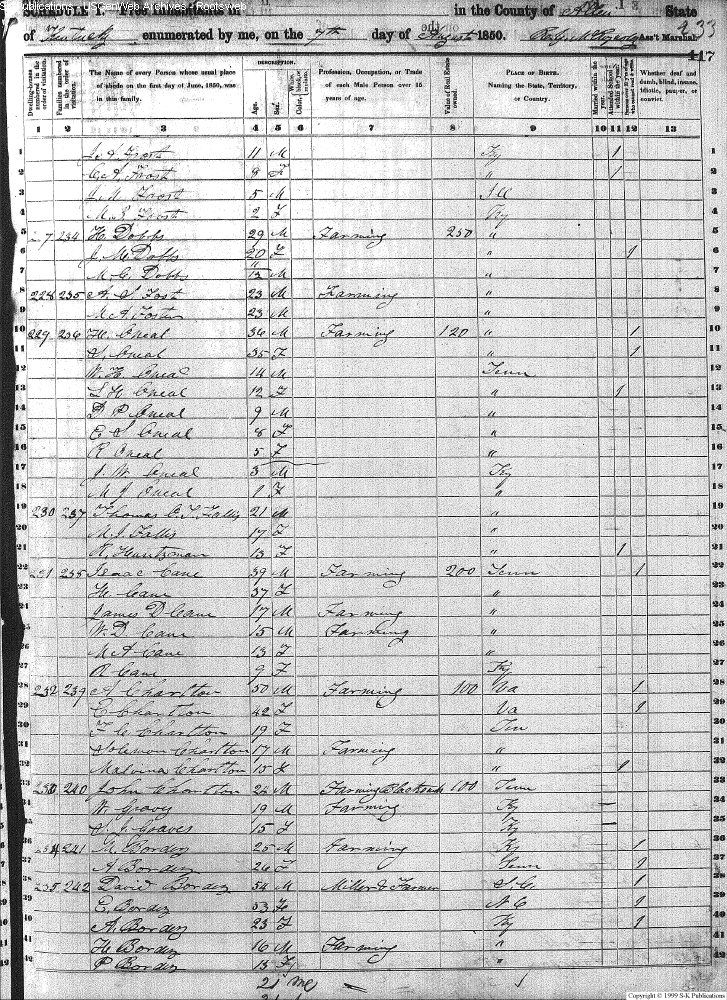 S-K Publications - USGenWeb Archives - Rootsweb
SCHEDULE I. Free Inhabitants in in the County of Allen State
of Kentucky enumerated by me, on the 7th day of August 1850. Ass't Marshal.
417
Dwelling-houses numbered in the order of visitation.
Families numbered in the order of visitation.
The Name of every Person whose usual place of abode on the first day of June, 1850, was in this family.
DESCRIPTION.
Age.
Sex.
Color, White, black, or mulatto.
Profession, Occupation, or Trade of each Male Person over 15 years of age.
Value of Real Estate owned.
PLACE OF BIRTH. Naming the State, Territory, or Country.
Married within the year.
Attended School within the year.
Whether deaf and dumb, blind, insane, idiotic, pauper, or convict.
1 2 3 4 5 6 7 8 9 10 11 12 13
1 J. A. Frost 11 M Ky 1
2 C. A. Frost 8 F " 1
3 J. M. Frost 5 M Ill
4 M. R. Frost 2 F Ky
5 227 234 H. Dobbs 29 M Farming 250 "
6 J. M. Dobbs 20 F " 1
7 M. C. Dobbs M "
8 228 235 A. S. Fost 23 M Farming "
9 M. A. Foster 23 M "
10 229 236 H. Oneal 36 M Farming 120 " 1
11 S. Oneal 35 F " 1
12 W. H. Oneal 14 M Tenn
13 L H Oneal 12 F " 1
14 D P Oneal 9 M "
15 E S Oneal 8 F "
16 R Oneal 5 F "
17 J. W. Oneal 3 M Ky
18 M J Oneal 1 F "
19 230 237 Thomas C. T. Fallis 21 M "
20 M. J. Fallis 17 F "
21 R. Huntzman 13 F " 1
22 231 238 Isaac Cane 39 M Farming 200 Tenn 1
23 H. Cane 37 F "
24 James D Cane 17 M Farming "
25 W. D. Cane 15 M Farming "
26 M A Cane 13 F "
27 R Cane 9 F Ky
28 232 239 A Charlton 50 M Farming 100 Va 1
29 E Charlton 42 F Va 1
30 F C Charlton 19 F Ten
31 Solemon Charlton 17 M Farming "
32 Malvina Charlton 15 F " 1
33 233 240 John Charlton 22 M Farming Blacksmith 100 Tenn
34 W. Gravy 19 M Farming Ky
35 S. J. Graves 15 F Ky
36 234 241 M. Borden 25 M Farming Ky 1
37 A Borden 26 F Tenn 1
38 235 242 David Borden 54 M Miller & Farmer S. C. 1
39 E. Borden 53 F N C 1
40 A. Borden 23 F Ky 1
41 H Borden 16 M Farming "
42 P Borden 13 F "
21 me
Copyright © 1999 S-K Publications